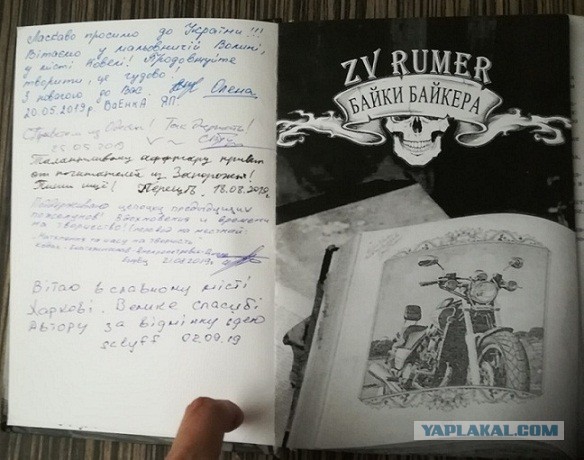 Ласкаво просимо до України!!!
Вітаємо у мальовничій Волині,
у місті Ковелі! Продовжуйте
творити, це чудово!
З повагою до Вас Олена
20.05.2019р. ВаЕнка ЯП.
Привет из Одессы! Так держать!
25.05.2019
Талантливому аффтару привет
от почитателей из Запорожья!
Пиши ещё! Перецъ. 18.08.2019.
Поддерживаю цепочку предыдущих
пожеланий! Вдохновения и времени
на творчество!
21.08.2019г.
Вітаю в славному місті
Харкові. Велике спасибі
Автору за відмінну ідею
02.09.19
ZV RUMER
БАЙКИ БАЙКЕРА
YAPLAKAL.COM